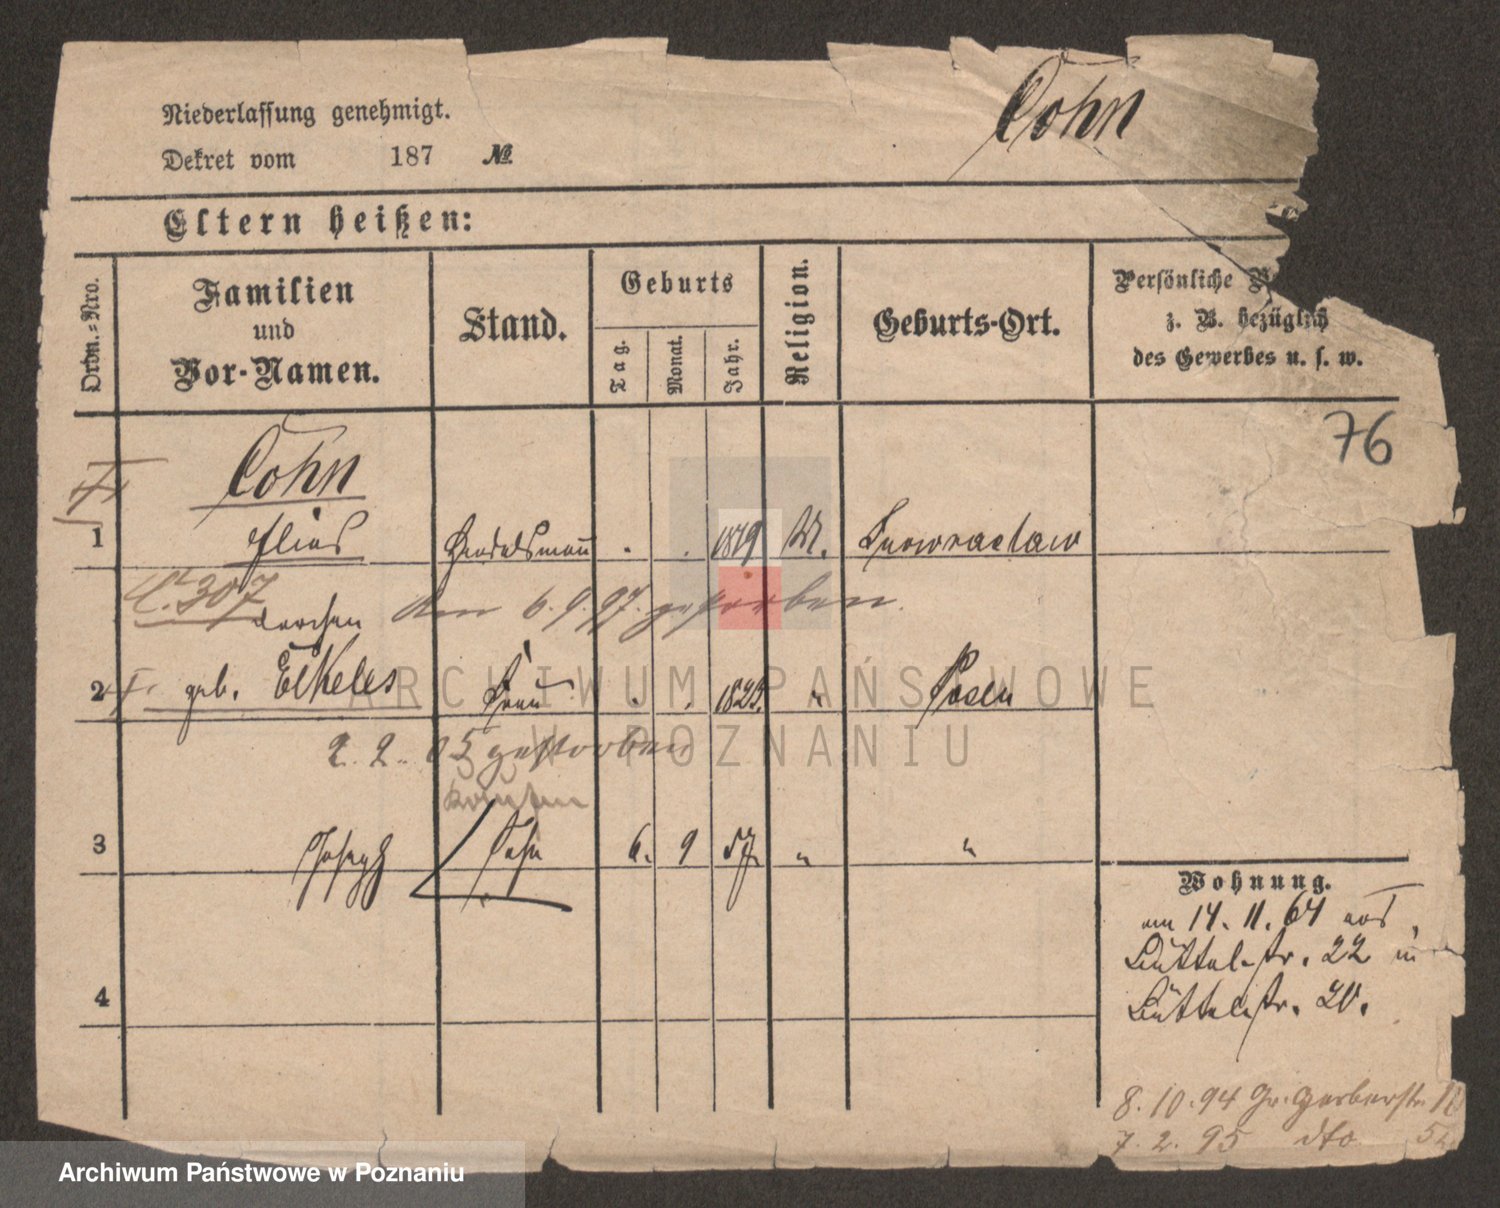 Cohn
Niederlassung genehmigt.
Dekret vom 187 №
Eltern heißen:
Ordn.-Nro. Familien und Vor-Namen. Stand. Geburts Tag. Monat. Jahr. Religion. Geburts-Ort. Persönliche
z. B. bezüglich
des Gewerbes u. s. w.
76
Cohn
1 Elias Handelsmann . . 1819 M. Inowraclaw
C. 307
Dorchen den 6.9.97. gestorben.
2 geb. Elkeles Frau . . " Posen
2. 2. 05 gestorben
3 Joseph Sohn 6. 9 57 " "
Wohnung.
am 14. 11. 64 aus
Büttelstr. 22 in
Büttelstr. 20.
4
8.10.94 Gr. Gerberstr.
7.2.95 dto 52
ARCHIWUM PAŃSTWOWE
W POZNANIU
Archiwum Państwowe w Poznaniu